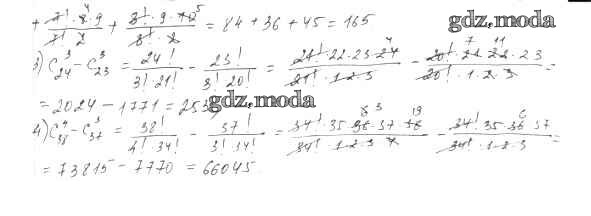 + 7! · 8 · 9 / 7! 2 + 8! · 9 · 10 / 8! · 2 = 84 + 36 + 45 = 165
gdz.moda
3) C³₂₄ - C³₂₃ = 24! / 3! · 21! - 23! / 3! 20! = 21! · 22 · 23 · 24 / 21! · 1 · 2 · 3 - 20! · 21 · 22 · 23 / 20! · 1 · 2 · 3 =
= 2024 - 1771 = 253
gdz.moda
4) C⁴₃₈ - C³₃₇ = 38! / 4! · 34! - 37! / 3! 34! = 34! · 35 · 36 · 37 · 38 / 34! · 1 · 2 · 3 · 4 - 34! · 35 · 36 · 37 / 34! · 1 · 2 · 3 =
= 73815 - 7770 = 66045